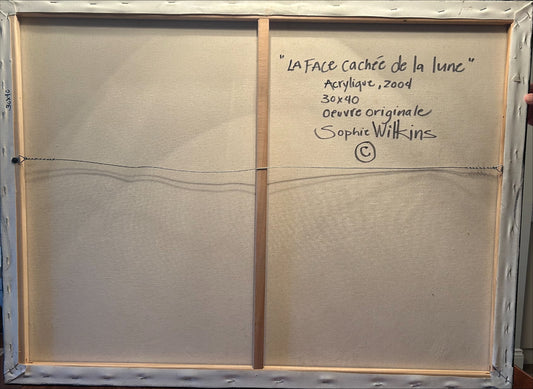 "LA FACE cachée de la lune"
Acrylique, 2004
30x40
oeuvre originale
Sophie Wilkins
©
30x40